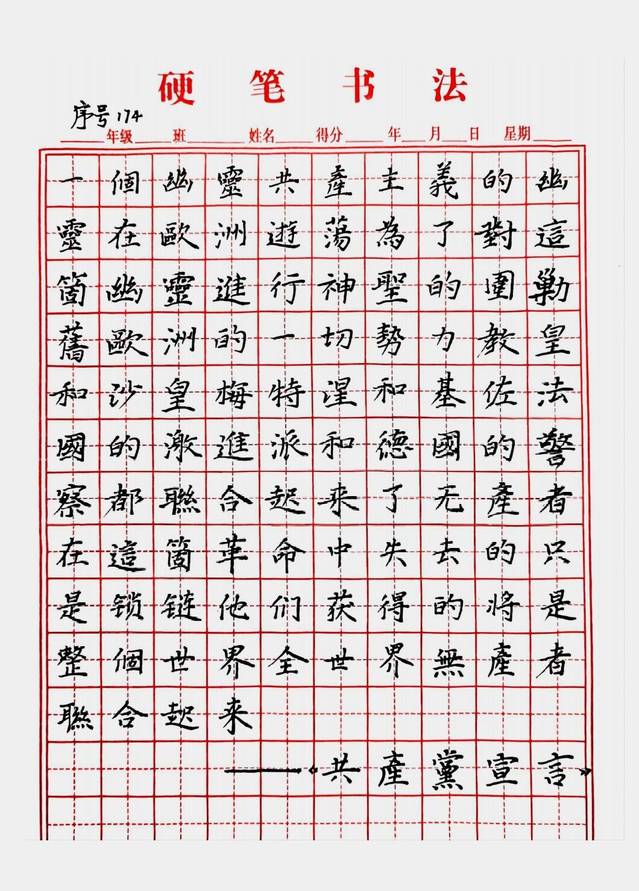 硬笔书法
序号174
年级 班 姓名 得分 年 月 日 星期
一個幽靈共產主義的幽
靈在歐洲遊蕩為了對這
箇幽靈進行神聖的圍剿
舊歐洲的一切勢力教皇
和沙皇梅特涅和基佐法
國的激進派和德國的警
察都聯合起来了无產者
在這箇革命中失去的只
是锁链他们获得的将是
整個世界全世界無產者
聯合起来
——《共產黨宣言》